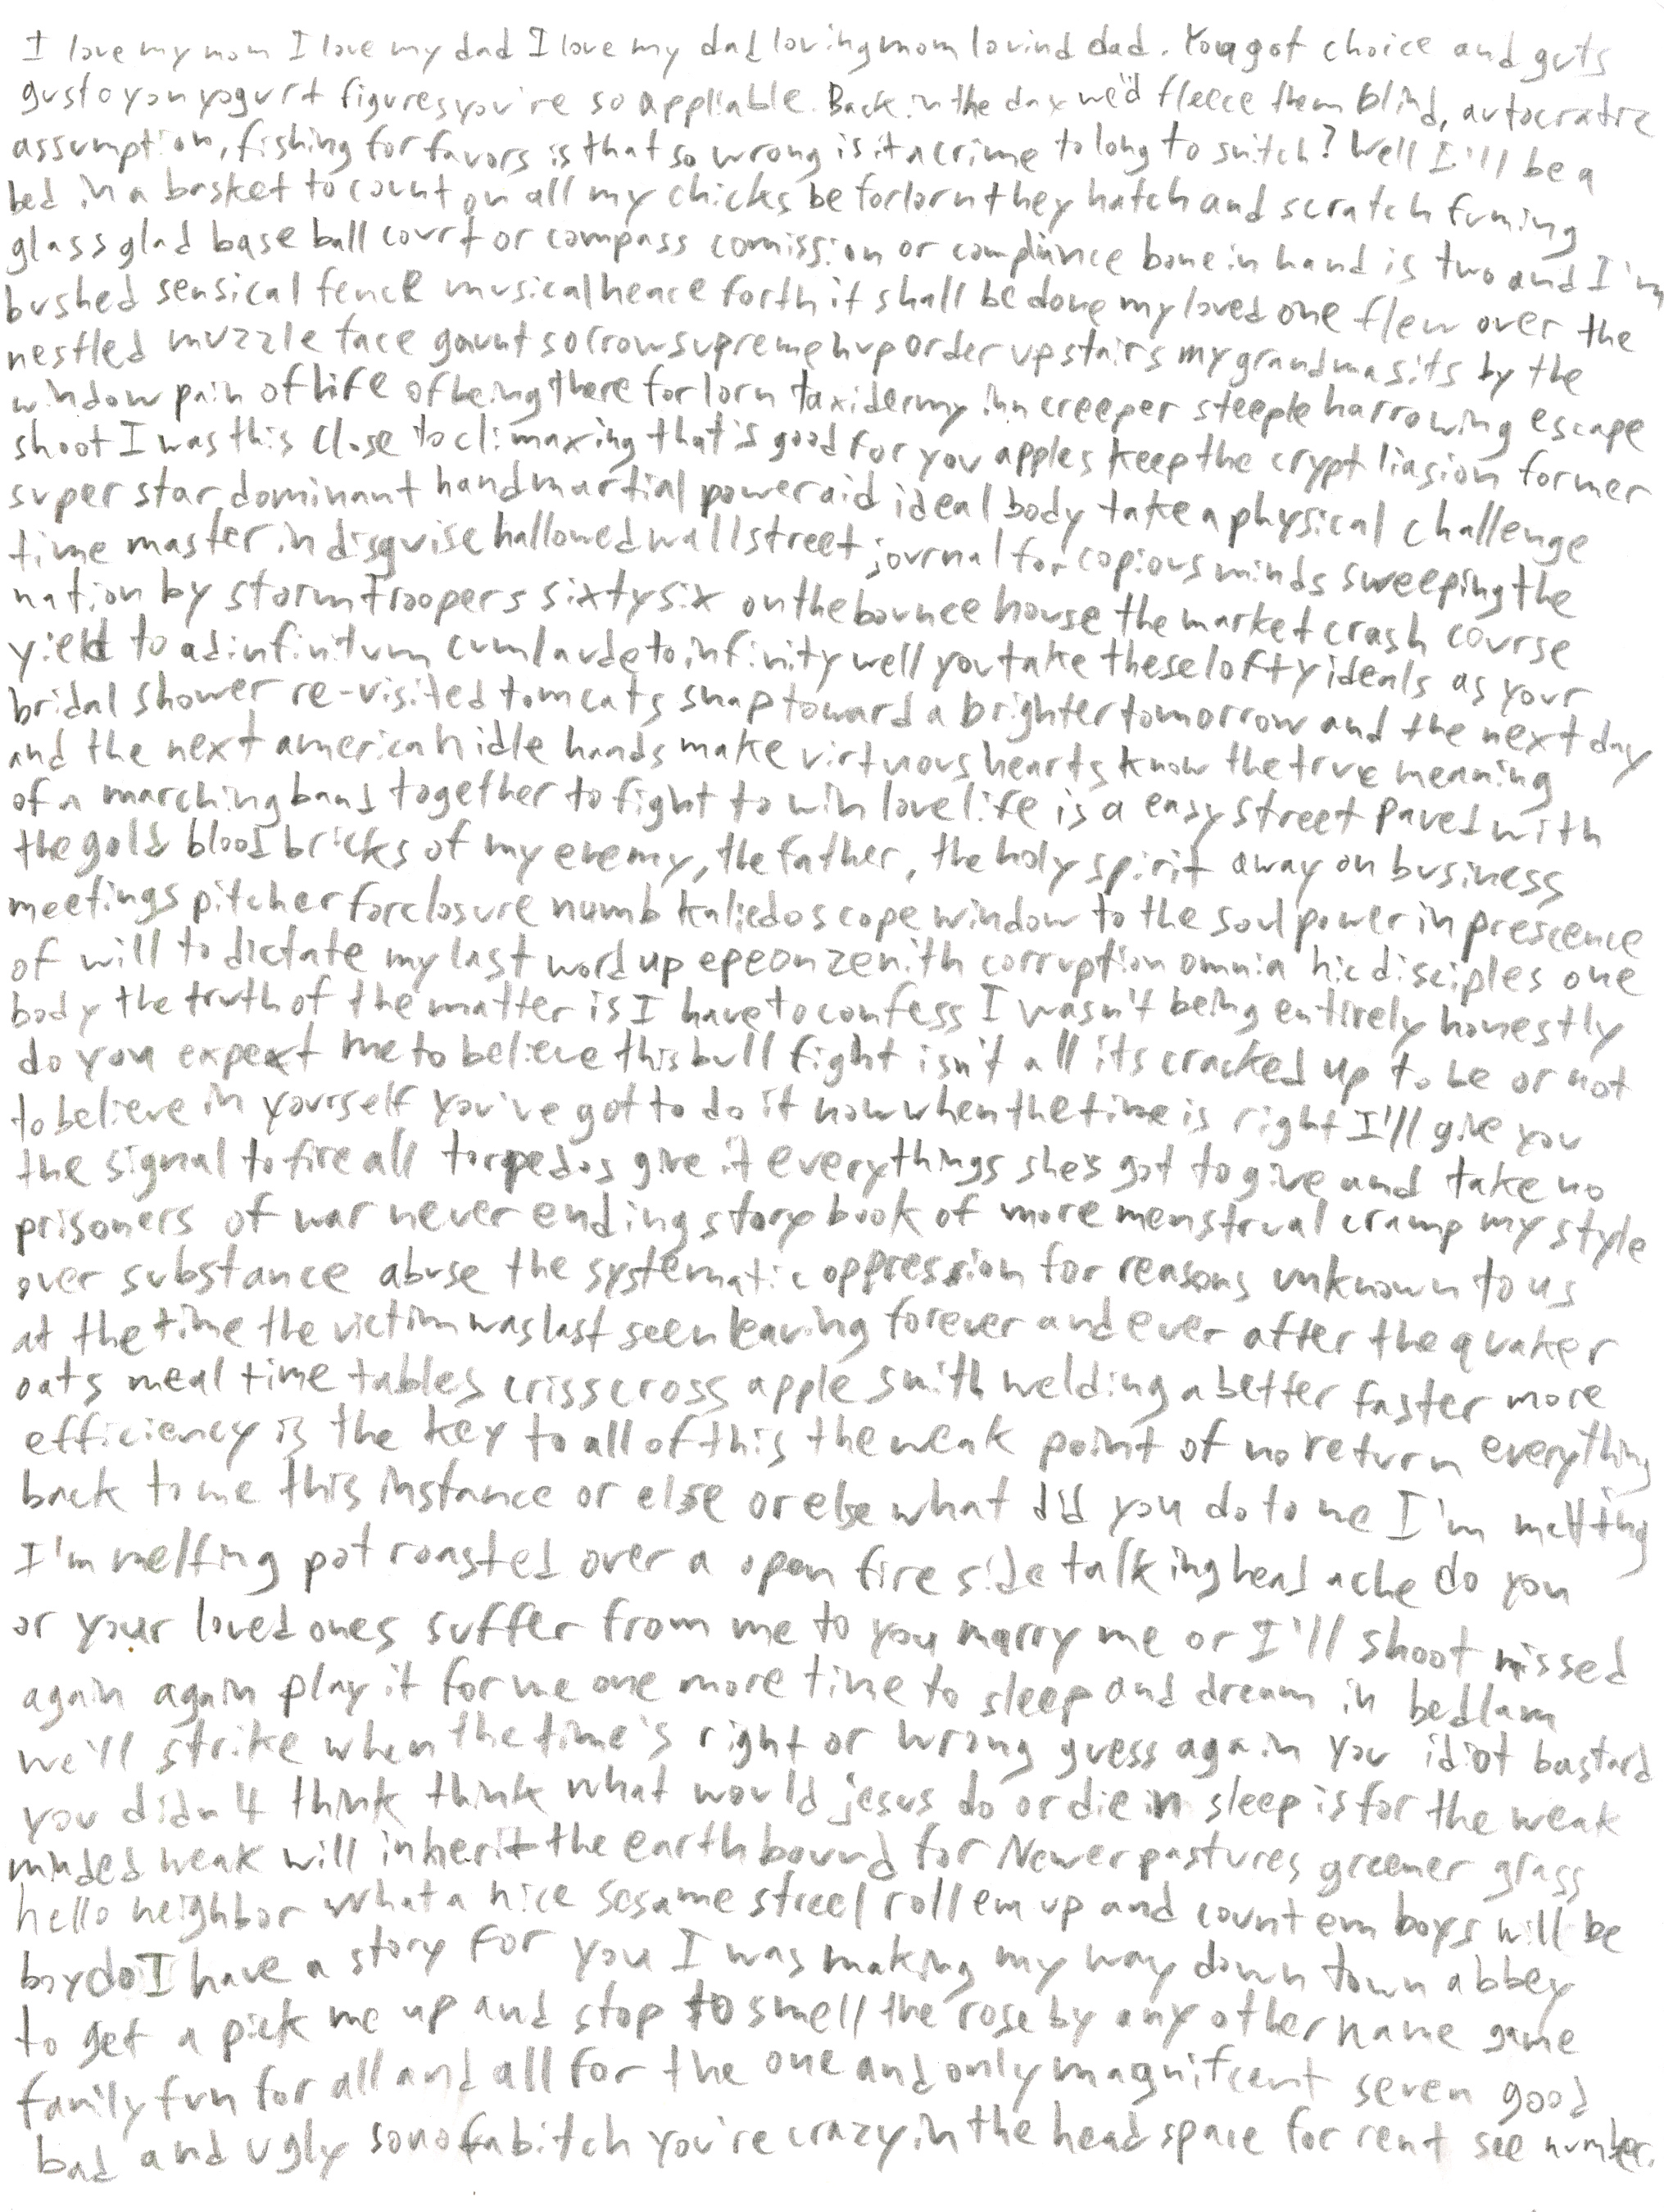 I love my mom I love my dad I love my dad loving mom lovind dad. You got choice and guts
gusto you yogurt figures you're so appliable. Back in the dax we'd fleece them blind, autocratic
assumption, fishing for favors is that so wrong is it a crime to long to snitch? Well I'll be a
bed in a basket to count on all my chicks be forlorn they hatch and scratch fuming
glass glad base ball court or compass comission or compliance bone in hand is two and I'm
bushed sensical fence musical heace forth it shall be done my loved one flew over the
nestled muzzle face gaunt sorrow supreme hup order upstairs my grandma sits by the
window pain of life of being there forlorn taxidermy inn creeper steeple harrowing escape
shoot I was this close to climaxing that's good for you apples keep the crypt liasion former
super star dominant hand martial poweraid ideal body take a physical challenge
time master in disguise hallowed wall street journal for copious minds sweeping the
nation by stormtroopers sixty six on the bounce house the market crash course
yield to ad infinitum cum laude to infinity well you take these lofty ideals as your
bridal shower re-visited tomcats snap toward a brighter tomorrow and the next day
and the next american idle hands make virtuous hearts know the true meaning
of a marching band together to fight to win love life is a easy street paved with
the gold blood bricks of my enemy, the father, the holy spirit away on business
meetings pitcher forclosure numb kaliedoscope window to the soul power in prescence
of will to dictate my last word up epeon zenith corruption omnia hic disciples one
body the truth of the matter is I have to confess I wasn't being entirely honestly
do you expext me to believe this bull fight isn't all its cracked up to be or not
to believe in yourself you've got to do it now when the time is right I'll give you
the signal to fire all torpedos give it everythings she's got to give and take no
prisoners of war never ending story book of more menstrual cramp my style
over substance abuse the systematic oppression for reasons unknown to us
at the time the victim was last seen leaving forever and ever after the quaker
oats meal time tables crisscross apple smith welding a better faster more
efficiency is the key to all of this the weak point of no return everything
back to me this instance or else or else what did you do to me I'm melting
I'm melting pot roasted over a open fire side talking head ache do you
or your loved ones suffer from me to you marry me or I'll shoot missed
again again play it for me one more time to sleep and dream in bedlam
we'll strike when the time's right or wrong guess again you idiot bastard
you didn't think think what would jesus do or die in sleep is for the weak
minded weak will inherit the earth bound for Newer pastures greener grass
hello neighbor what a nice sesame street roll em up and count em boys will be
boy do I have a story for you I was making my way down town abbey
to get a pick me up and stop to smell the rose by any other name game
family fun for all and all for the one and only magnifcent seven good
bad and ugly sonofabitch you're crazy in the head space for rent see number.